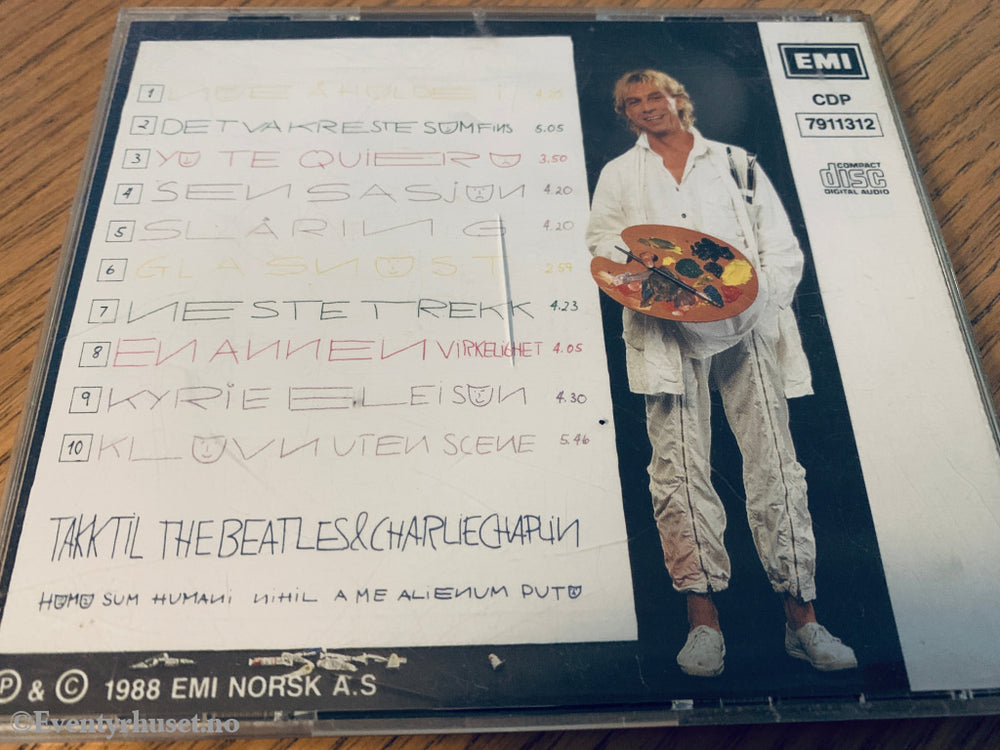 1 NOE Å HOLDE I 4.25
2 DET VAKRESTE SOM FINS 5.05
3 YO TE QUIERO 3.50
4 SENSASJON 4.20
5 SLÅRING 4.20
6 GLASNOST 2.59
7 NESTE TREKK 4.23
8 EN ANNEN VIRKELIGHET 4.05
9 KYRIE ELEISON 4.30
10 KLOVN UTEN SCENE 5.46
TAKK TIL THE BEATLES & CHARLIE CHAPLIN
HOMO SUM HUMANI NIHIL A ME ALIENUM PUTO
Ⓟ & © 1988 EMI NORSK A.S
EMI
CDP
7911312
COMPACT
disc
DIGITAL AUDIO
©Eventyrhuset.no